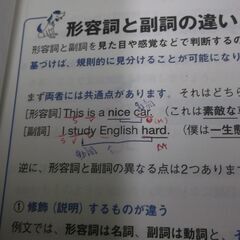 形容詞と副詞の違い
形容詞と副詞を見た目や感覚などで判断するの
基づけば、規則的に見分けることが可能になり
まず両者には共通点があります。それはどちら
形容詞
[形容詞] This is a nice car. (これは素敵な
S V C (M)
[副詞] I study English hard. (僕は一生懸
S V M
副詞
逆に、形容詞と副詞の異なる点は2つあります
① 修飾(説明)するものが違う
例文では、形容詞は名詞、副詞は動詞と、そ